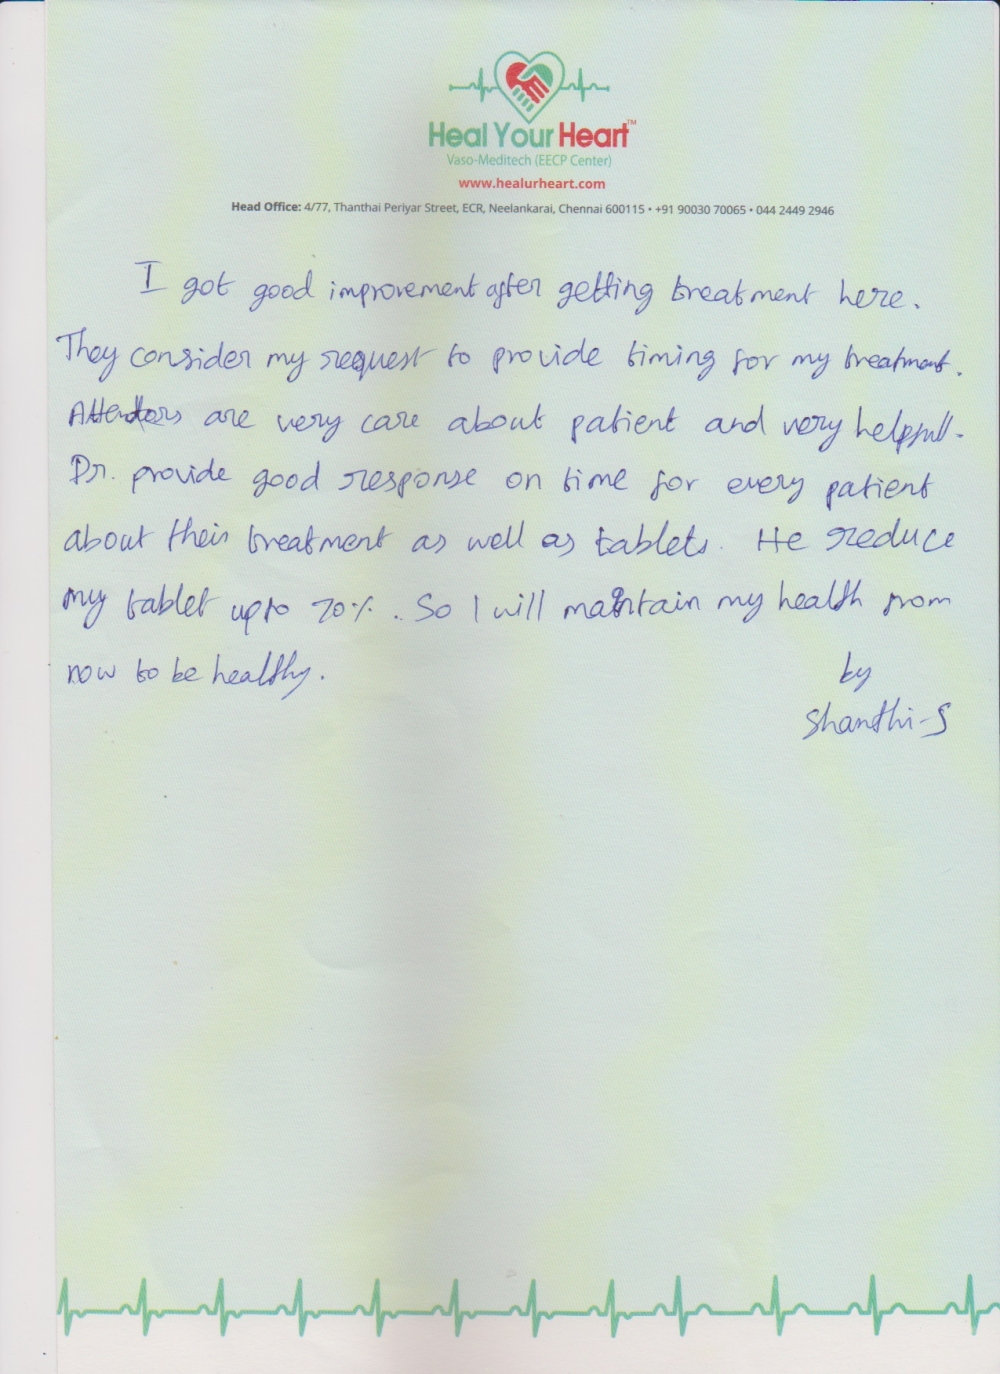 Heal Your Heart™
Vaso-Meditech (EECP Center)
www.healurheart.com
Head Office: 4/77, Thanthai Periyar Street, ECR, Neelankarai, Chennai 600115 • +91 90030 70065 • 044 2449 2946
I got good improvement after getting treatment here.
They consider my request to provide timing for my treatment.
Attendars are very care about patient and very helpfull.
Dr. provide good response on time for every patient
about their treatment as well as tablets. He reduce
my tablet upto 70%. So I will maintain my health from
now to be healthy.
by
Shanthi-S